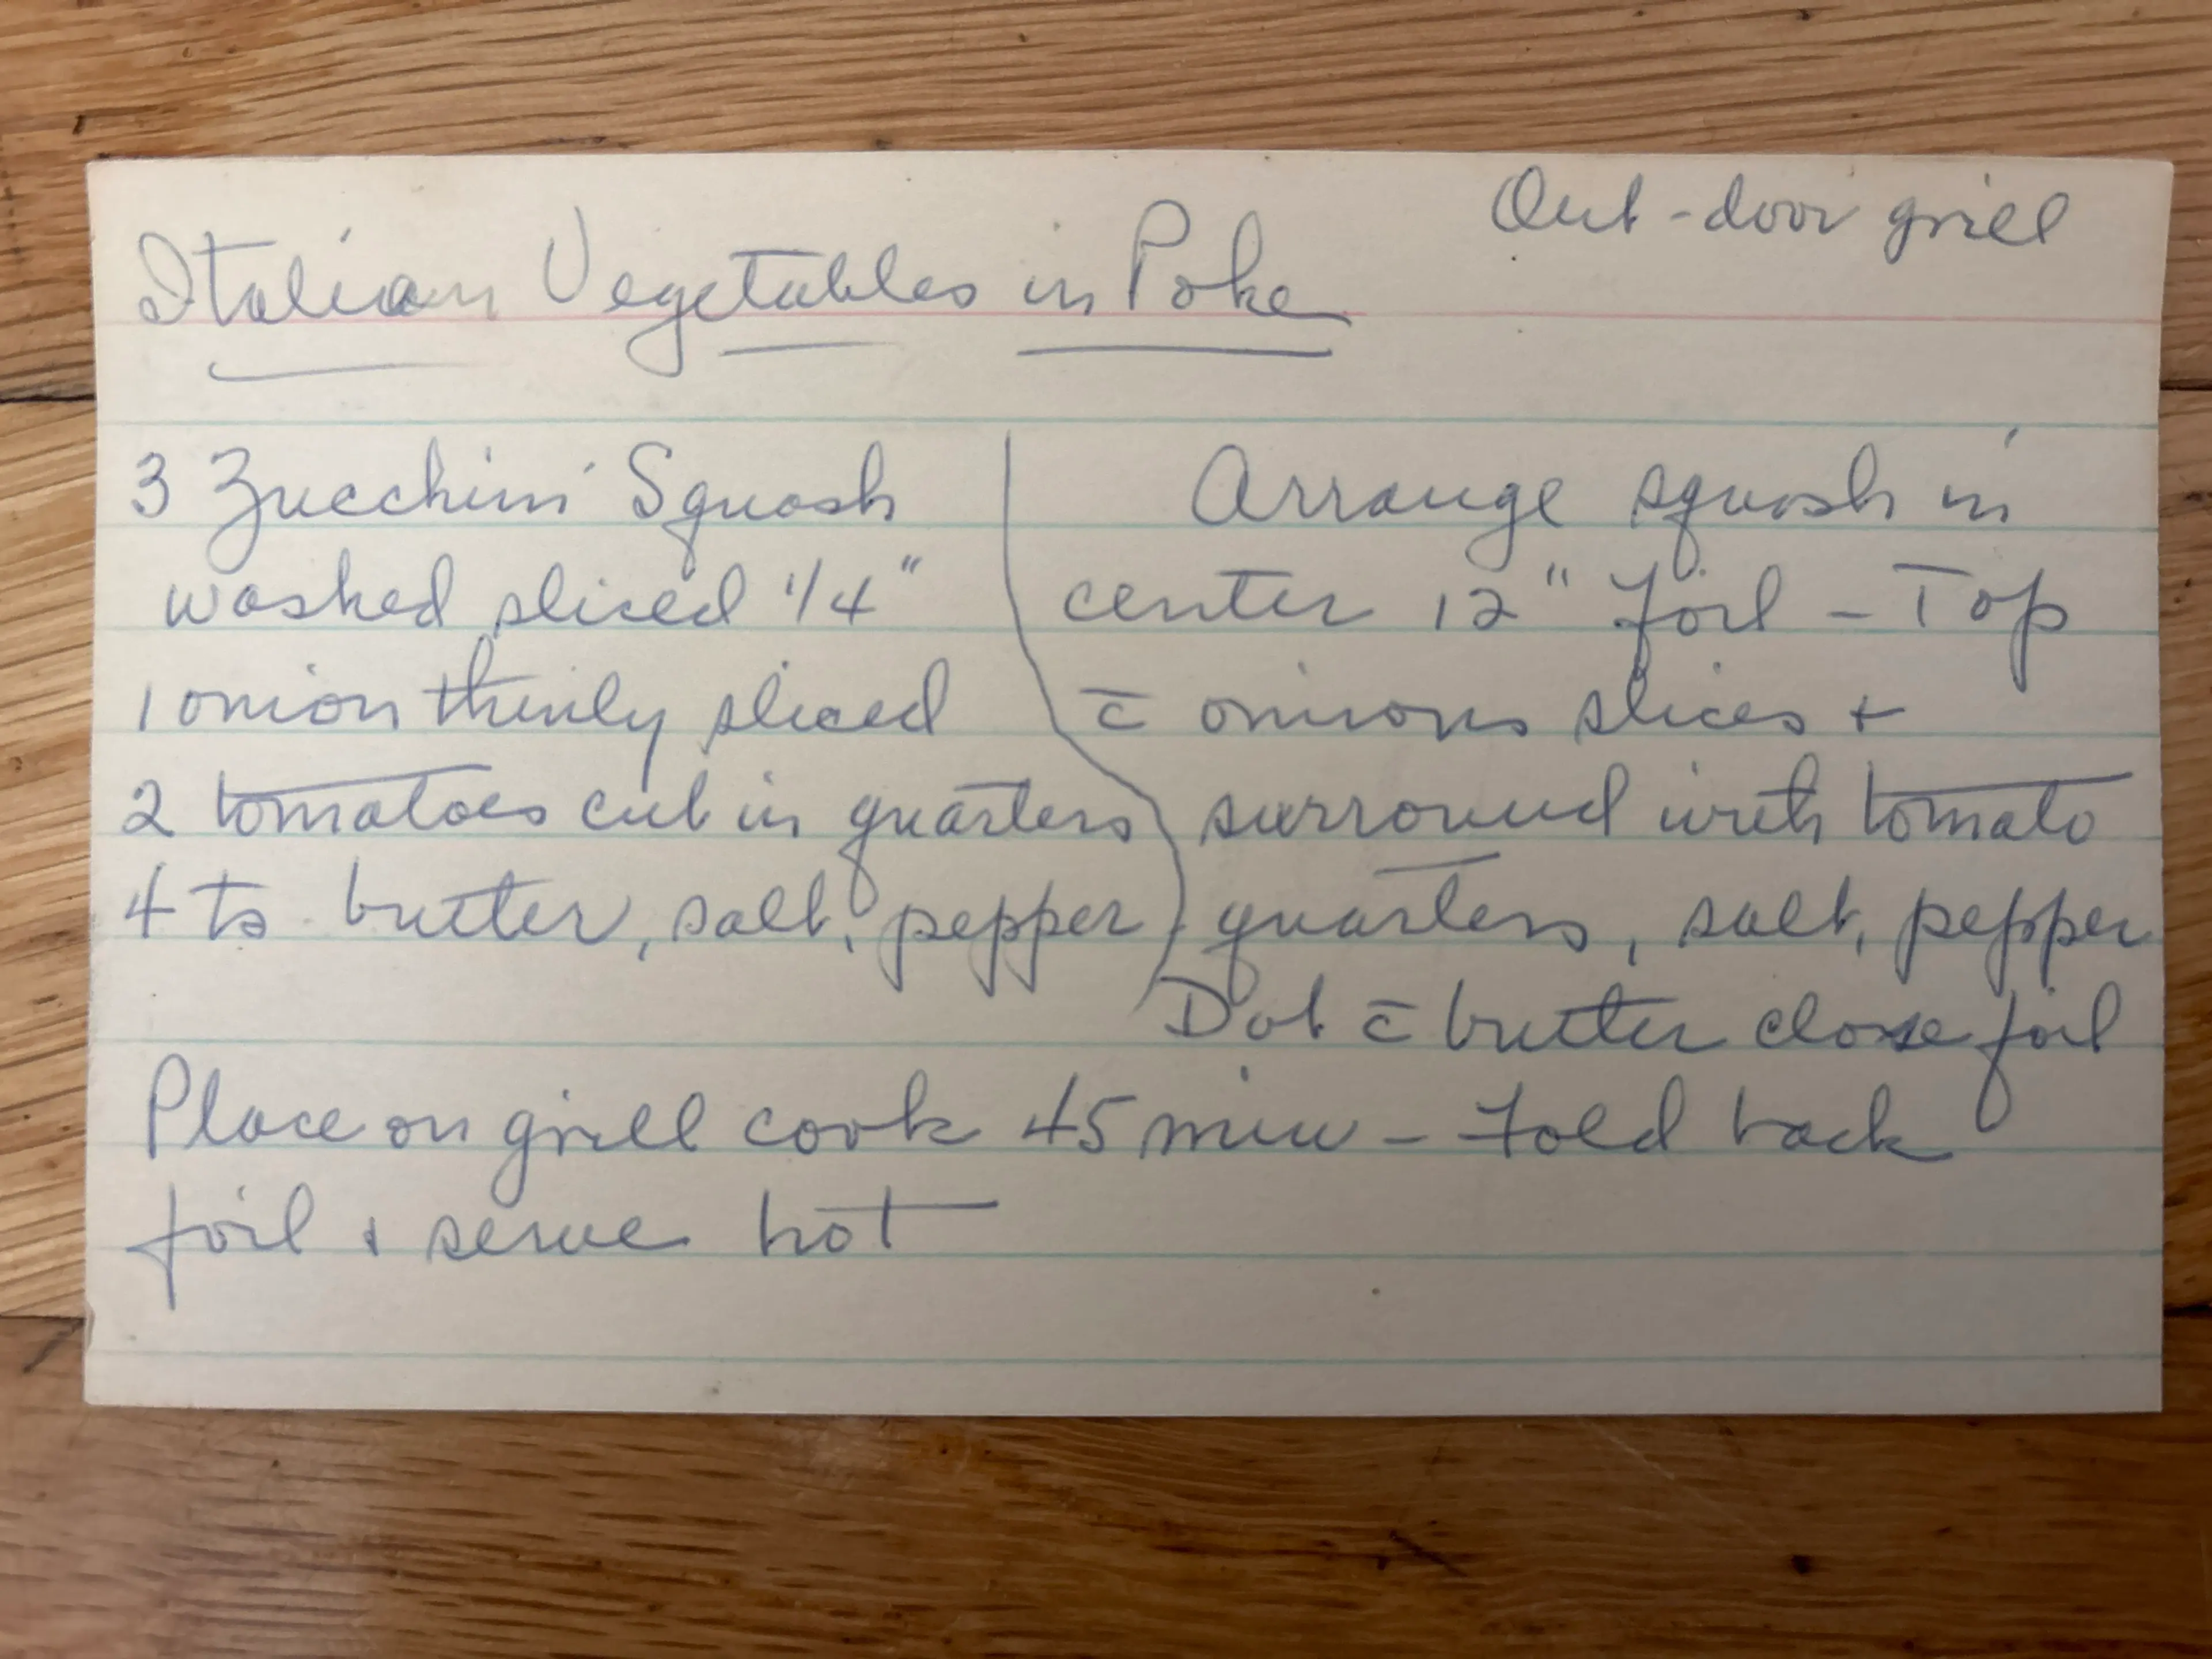 Out-door grill
Italian Vegetables in Poke
3 Zucchini Squash
washed sliced 1/4"
1 onion thinly sliced
2 tomatoes cut in quarters
4 ts butter, salt, pepper
Arrange squash in
center 12" foil - Top
c̄ onions slices +
surround with tomato
quarters, salt, pepper
Dot c̄ butter close foil
Place on grill cook 45 min - Fold back
foil + serve hot